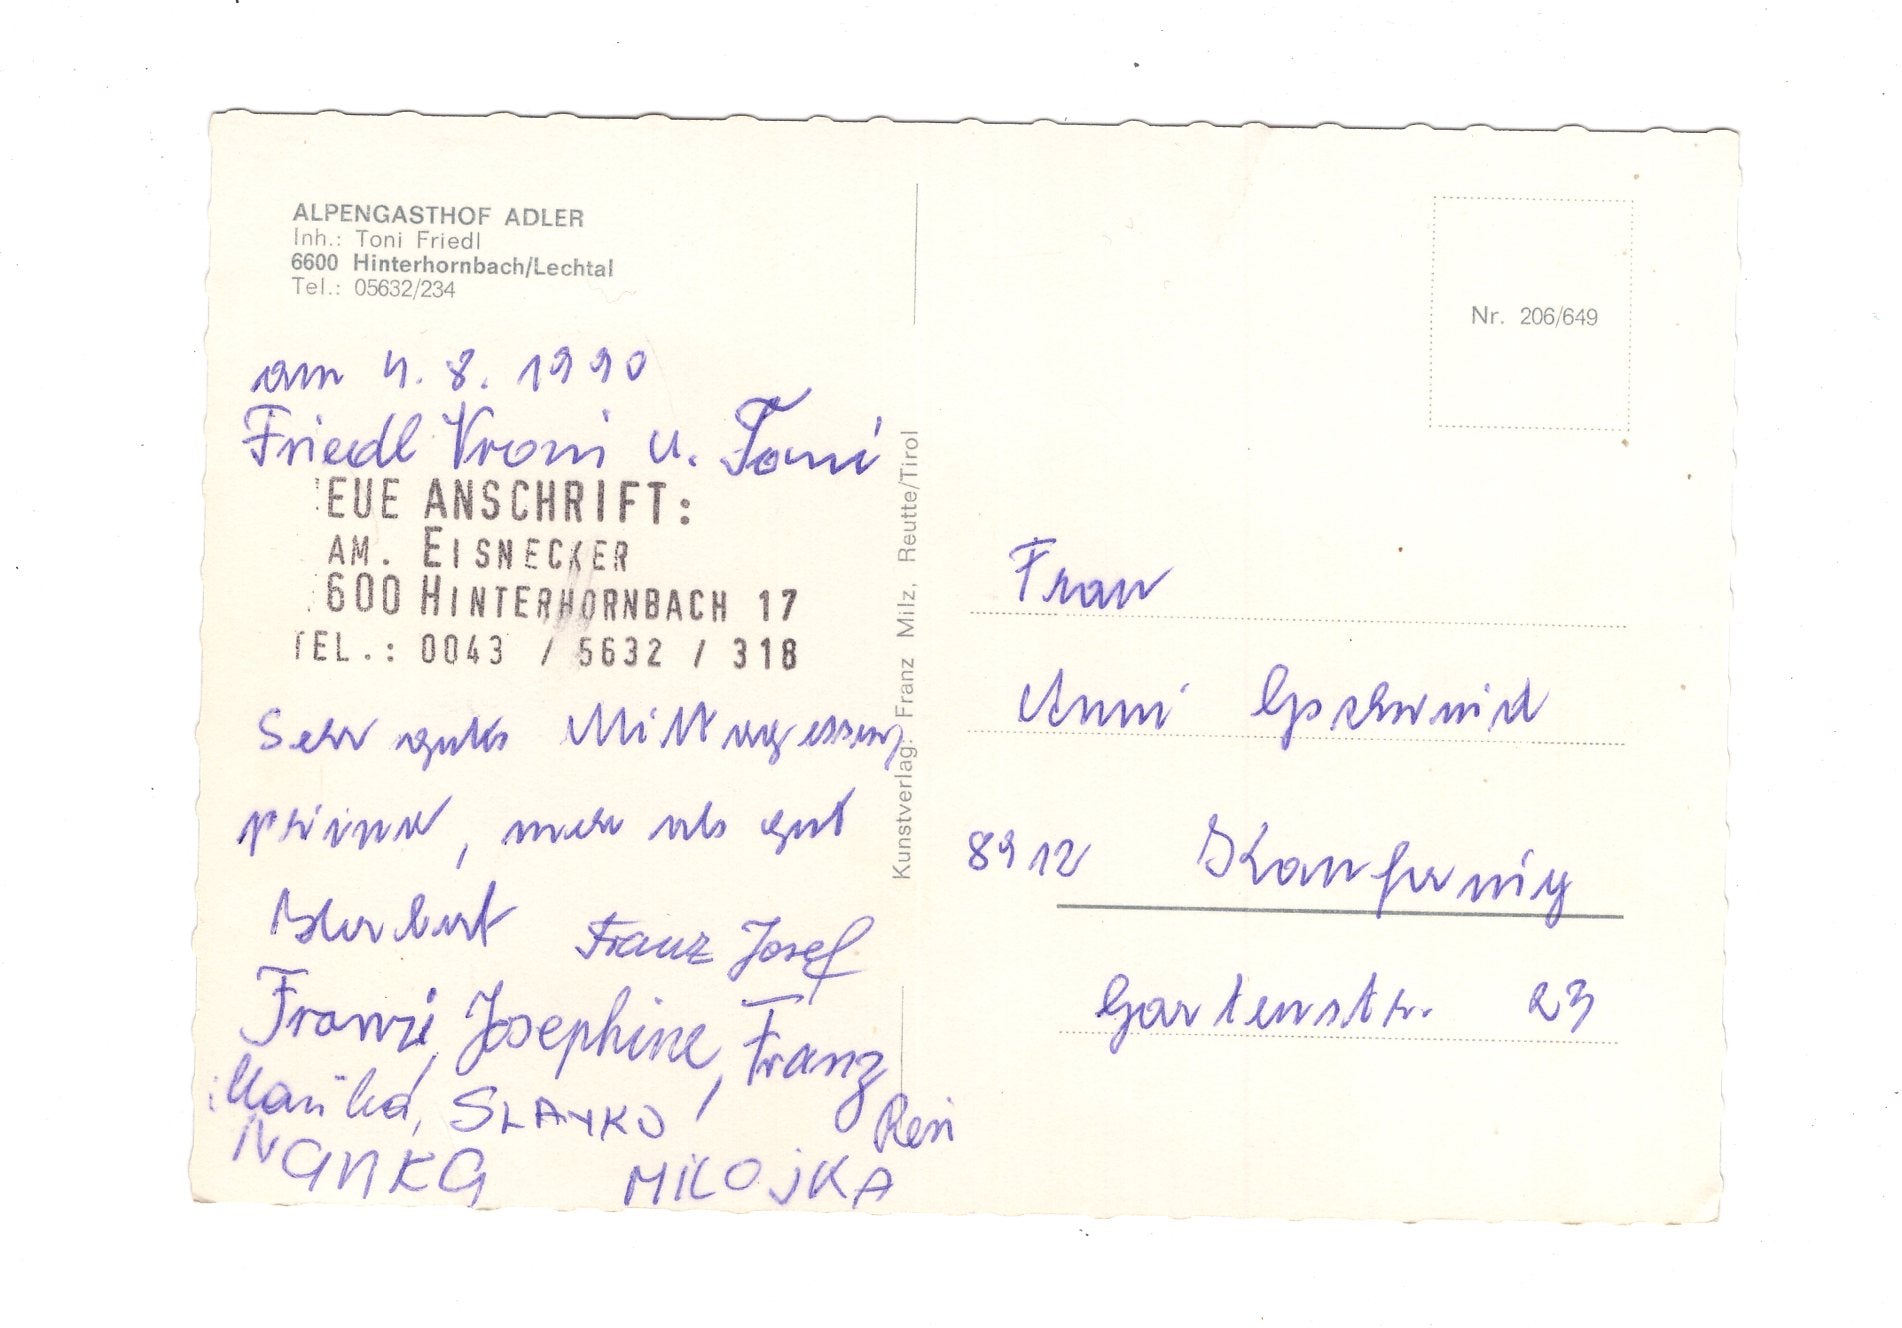 ALPENGASTHOF ADLER
Inh.: Toni Friedl
6600 Hinterhornbach/Lechtal
Tel.: 05632/234
am 4. 8. 1990
Friedl Vroni u. Toni
EUE ANSCHRIFT:
AM. EISNECKER
600 HINTERHORNBACH 17
TEL.: 0043 / 5632 / 318
Sehr gutes Mittagessen
prima, mehr als gut
Herbert Franz Josef
Franzi, Josephine, Franz
Marika, SLAVKO, Resi
IVANKA MILOJKA
Kunstverlag: Franz Milz, Reutte/Tirol
Nr. 206/649
Frau
Anni Gschwind
8912 Kaufering
Gartenstr. 23